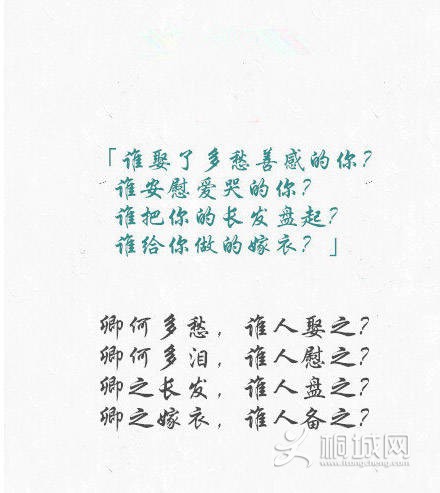 「谁娶了多愁善感的你？
谁安慰爱哭的你？
谁把你的长发盘起？
谁给你做的嫁衣？」
卿何多愁，谁人娶之？
卿何多泪，谁人慰之？
卿之长发，谁人盘之？
卿之嫁衣，谁人备之？
桐城网
www.itongcheng.com